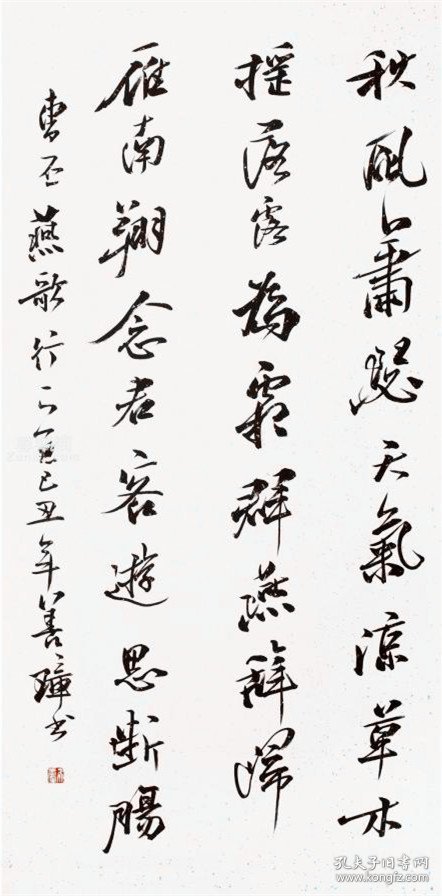 秋風蕭瑟天氣涼草木
摇落露為霜群燕辭歸
雁南翔念君客遊思斷腸
曹丕燕歌行己丑年善璋书
孔夫子旧书网
www.kongfz.com